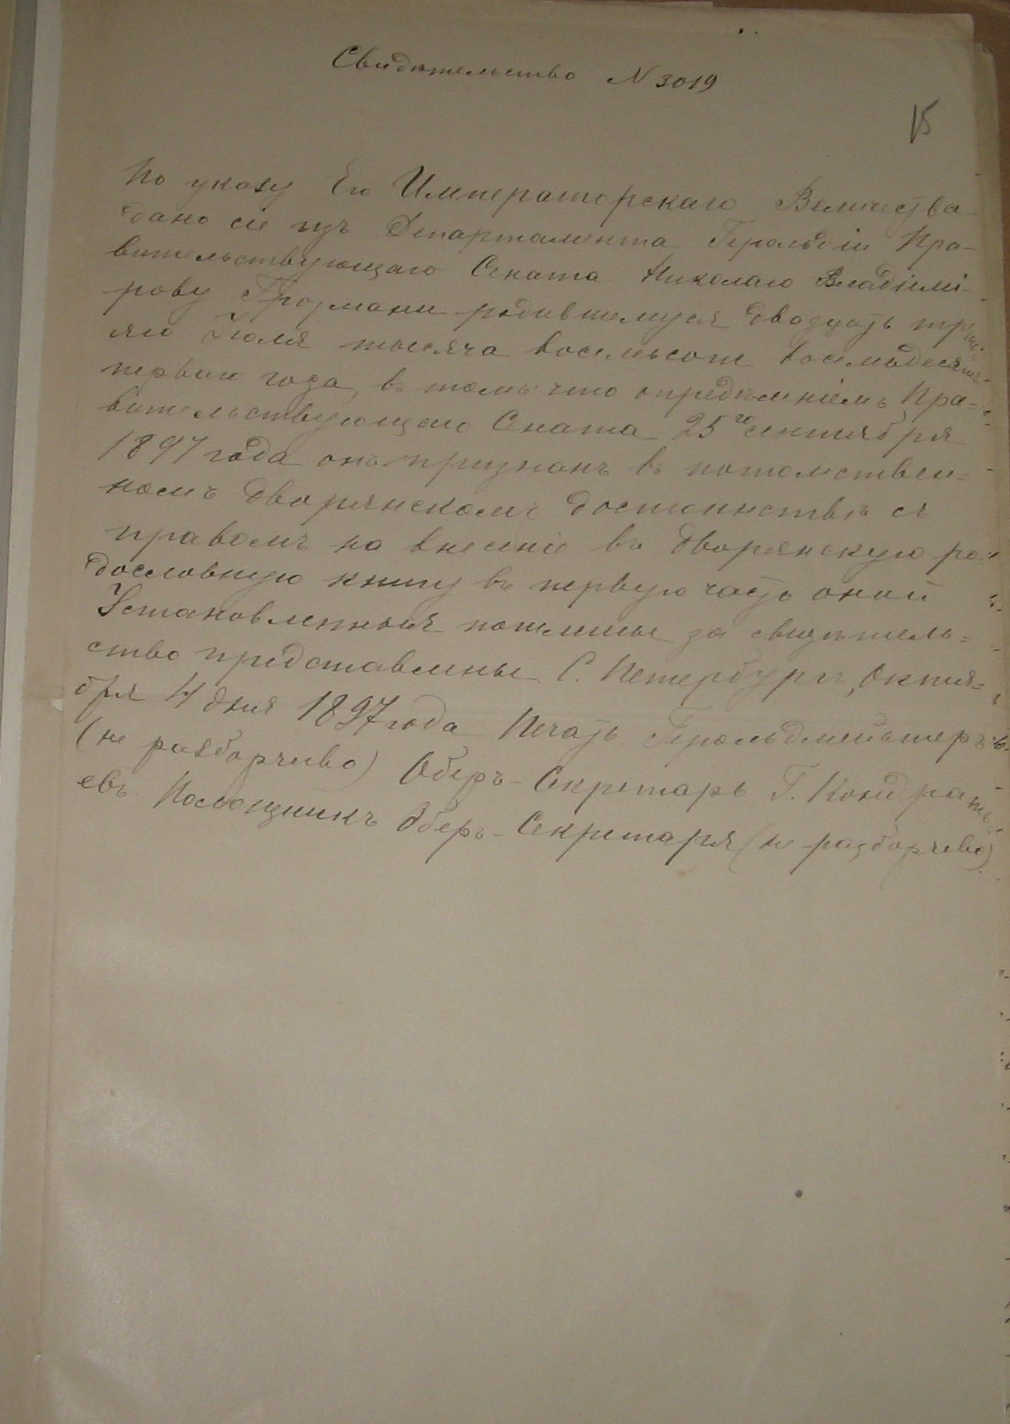 Свидѣтельство N 3019
15
По указу Его Императорскаго Величества
дано сіе изъ Департамента Герольдіи Пра-
вительствующаго Сената Николаю Владімі-
рову родившемуся двадцать треть-
яго Іюля тысяча восемьсотъ восемьдесятъ
перваго года, въ томъ что опредѣленіемъ Пра-
вительствующаго Сената 25го сентября
1897 года онъ признанъ въ потомствен-
номъ дворянскомъ достоинствѣ съ
правомъ на внесеніе въ дворянскую ро-
дословную книгу въ первую часть оной
Установленныя пошлины за свидѣтель-
ство представлены С. Петербургъ, Октя-
бря 4 дня 1897 года Печать Герольдмейстеръ
(не разборчиво) Оберъ-Секретарь Г. Кондрать-
евъ Помощникъ Оберъ-Секретаря (не разборчиво)